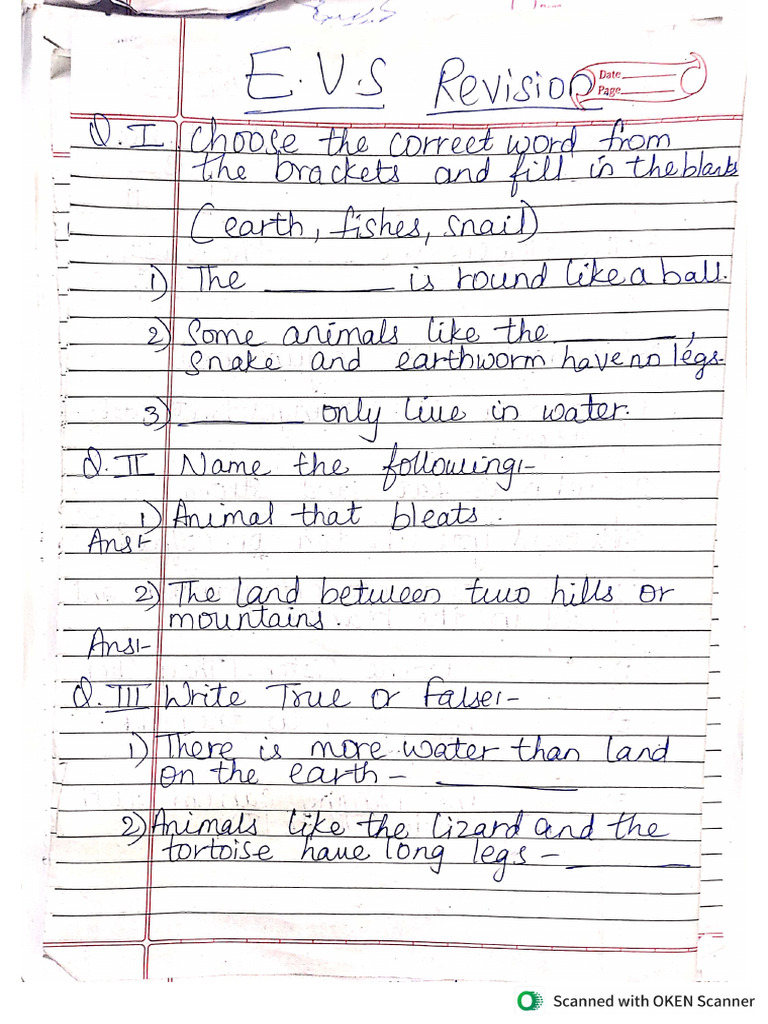 E.V.S Revision
Date
Page
Q.I Choose the correct word from
the brackets and fill in the blanks
(earth, fishes, snail)
1) The ________ is round like a ball.
2) Some animals like the ________,
snake and earthworm have no legs.
3) ________ only live in water.
Q.II Name the following:-
1) Animal that bleats.
Ans:-
2) The land between two hills or
mountains.
Ans:-
Q.III Write True or False:-
1) There is more water than land
on the earth - ________
2) Animals like the lizard and the
tortoise have long legs - ________
Scanned with OKEN Scanner